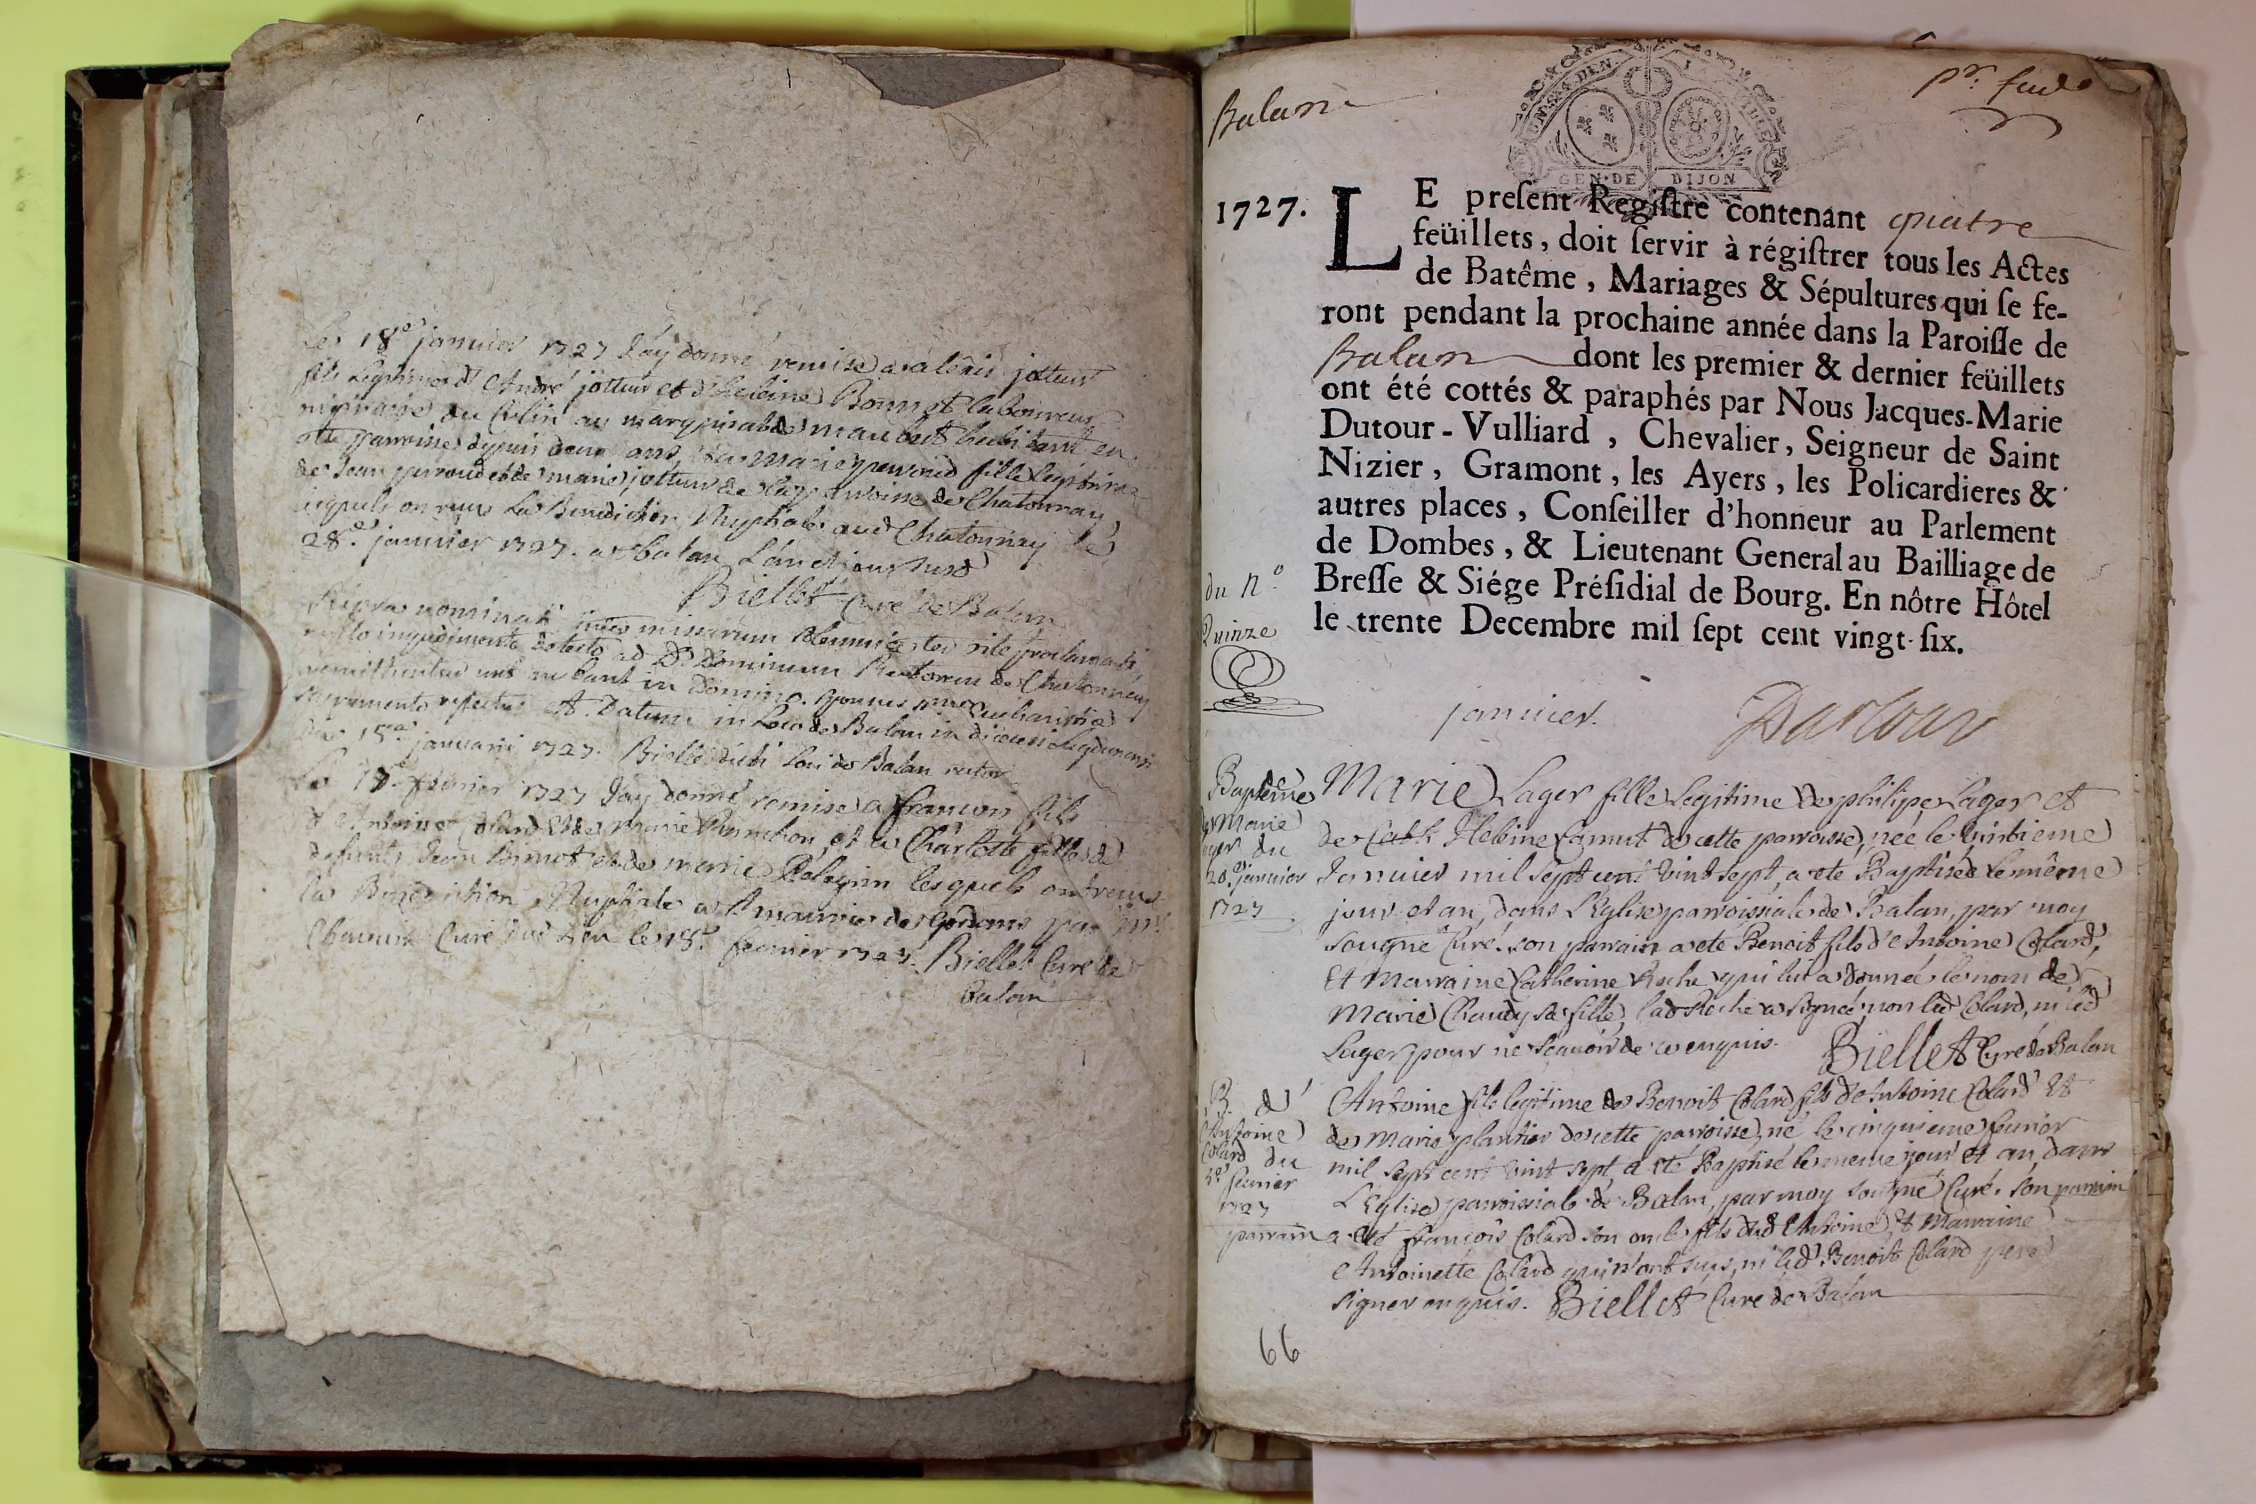 Le 18e janvier 1727 J'ay donné remise a aléxis jotteur
fils Legitime d'André jotteur et d'heleine Bonnet laboureur
originaire du Culin au marquisat de maubect habitant en
cette parroisse depuis deux ans, et a marie perroud fille Legitime
de Jean perroud et de marie jotteur de la parroisse de Chatonnay
lesquels on reçus La Benediction Nuptiale aud Chatonnay le
28e janvier 1727. a Balan L'an et jour susd
Biellet Curé de Balan
Supra nominati inter missarum solemnia ter rite proclamati,
nullo impedimento detecto ad D. Dominum Rectorem de Chatonnay
remittuntur ut nubant in Domino.
sacramento refectus Datum in Loco de Balan in
die 15a januarii 1727. Biellet dicti Loci de Balan rector
Le février 1727 J'ay donné remise a françois fils
d'Antoine Colard et de marie et a Charlotte fille de
defunts Jean et de marie lesquels ont reçus
la Benediction Nuptiale a St maurice de Gordans par Mr
Curé dud Lieu le 18e fevrier 1727. Biellet Curé de
Balan
Balan
GEN·DE DIJON
1727.
LE present Registre contenant quatre
feüillets, doit servir à régistrer tous les Actes
de Batême, Mariages & Sépultures qui se fe-
ront pendant la prochaine année dans la Paroisse de
Balan dont les premier & dernier feüillets
ont été cottés & paraphés par Nous Jacques-Marie
Dutour-Vulliard, Chevalier, Seigneur de Saint
Nizier, Gramont, les Ayers, les Policardieres &
autres places, Conseiller d'honneur au Parlement
de Dombes, & Lieutenant General au Bailliage de
Bresse & Siége Présidial de Bourg. En nôtre Hôtel
le trente Decembre mil sept cent vingt-six.
du n.o
Quinze
janvier.
Baptême
de Marie
Lager du
20e janvier
1727
Marie Lager fille Legitime de philipe Lager et
de Cath Heleine Comut de cette parroisse, née le vintieme
Janvier mil sept cent vint sept, a eté Baptisée le même
jour et an, dans L'Eglise parroissiale de Balan, par moy
sousigné Curé. son parrain a eté Benoit fils d'Antoine Colard,
et marraine Catherine Roche qui lui a donnée le nom de
Marie Chaudy sa fille, lad Roche a signée, non led Colard, ni led
Lager pour ne sçauoir de ce enquis. Biellet Curé de Balan
B. d'
Antoine
Colard du
5e fevrier
1727
Antoine fils legitime de Benoit Colard fils d'Antoine Colard et
de Marie plantier de cette parroisse, né le cinquieme fevrier
mil sept cent vint sept, a eté Baptisé le meme jour et an, dans
L'Eglise parroissiale de Balan, par moy sousigné Curé. son parrain
parrain a eté françois Colard son oncle fils dud Antoine, et Marraine
Antoinette Colard qui n'ont sçus, ni led Benoit Colard pere
signer enquis. Biellet Curé de Balan
66